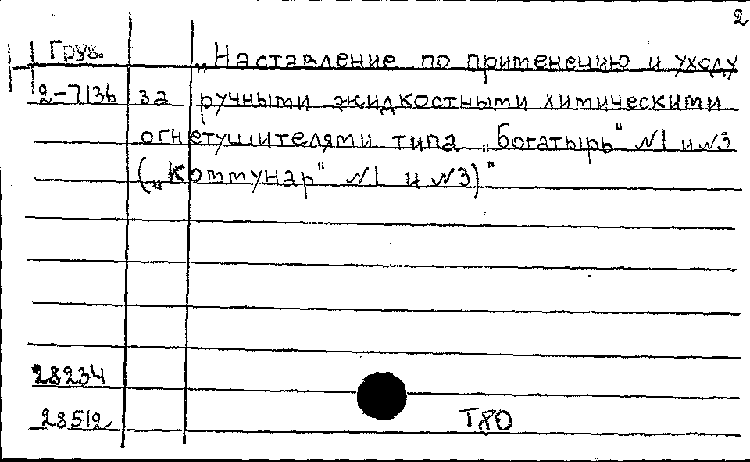 2
Груз. „Наставление по применению и уходу
2-7136 за ручными жидкостными химическими
огнетушителями типа „Богатырь" №1 и №3
(„Коммунар" №1 и №3)"
28234
28512
T80